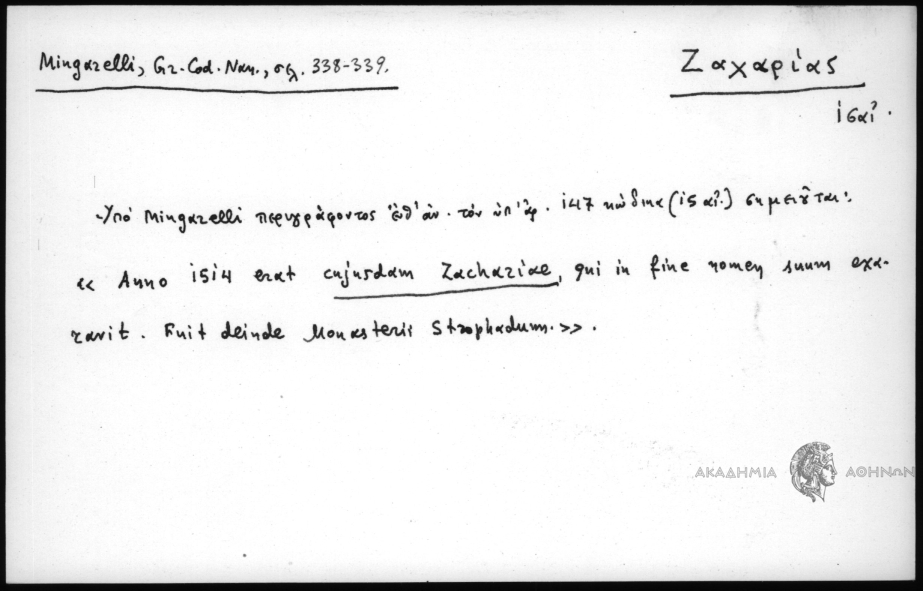 Mingarelli, Gr. Cod. Nan., σελ. 338-339.
Ζαχαρίας
ις αἰ.
Ὑπό Mingarelli περιγράφοντος ἐνθ' ἀν. τόν ὑπ' ἀρ. 147 κώδικα (ις αἰ.) σημειοῦται:
«Anno 1514 erat cujusdam Zachariae, qui in fine nomen suum exa-
ravit. Fuit deinde Monasterii Strophadum.».
ΑΚΑΔΗΜΙΑ ΑΘΗΝΩΝ